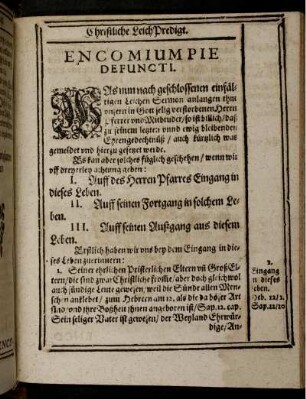 Christliche Leich Predigt.
ENCOMIUM PIE
DEFUNCTI.
WAs nun nach geschlossenen einfäl-
tigen Leichen Sermon anlangen thut
unsern in Gott selig verstorbenen Herrn
Pfarrer und Mitbruder, so ist billich, daß
zu seinem letzten unnd ewig bleibenden
Ehrengedechtnüß, auch kürtzlich was
gemeldet und hierzu gesetzet werde.
Es kan aber solches füglich geschehen, wenn wir
auff dreyerley achtung geben:
I. Auff des Herren Pfarres Eingang in
dieses Leben.
II. Auff seinen Fortgang in solchem Le-
ben.
III. Auff seinen Außgang aus diesem
Leben.
Erstlich haben wir uns bey dem Eingang in die-
ses Leben zuerinnern:
1. Seiner ehrlichen Priesterlichen Eltern uñ GroßEl-
tern, die sind zwar Christliche fromme, aber doch gleichwol
auch sündige Leute gewesen, weil die Sünde allen Men-
schen anklebet, zun Hebreern am 12. als die da böser Art
sind, und ihre Boßheit ihnen angeboren ist, Sap. 12. cap.
Sein seliger Vater ist gewesen, der Weyland Ehrwür-
dige, An-
1.
Eingang
in dieses
Leben.
Heb. 12/1.
Sap. 12/10
ENCO-